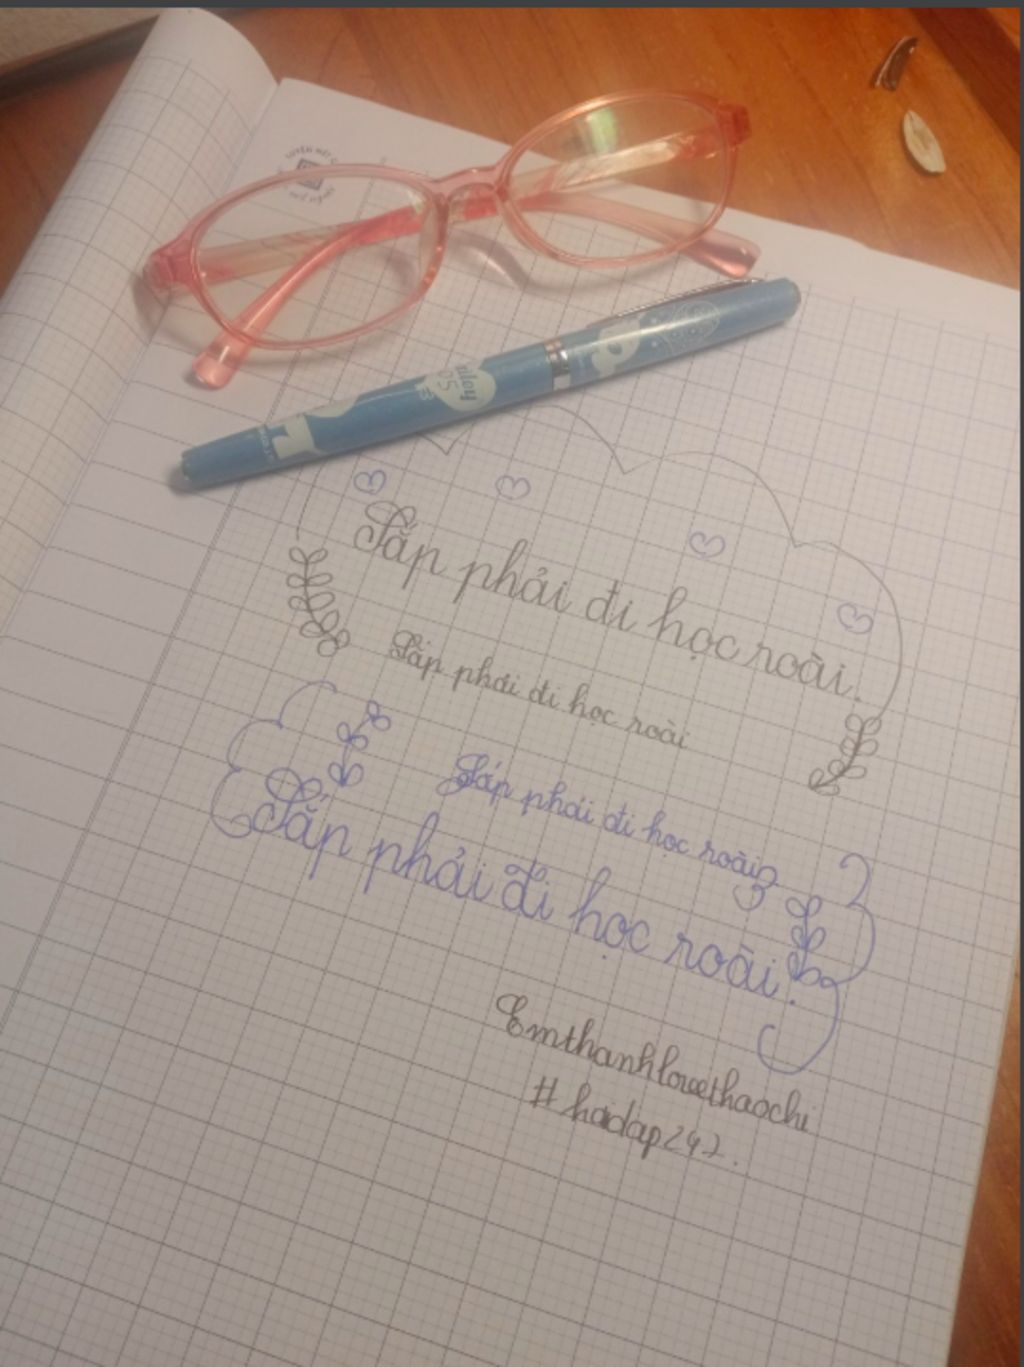 Sắp phải đi học roài.
Sắp phải đi học roài
Sắp phải đi học roài
Sắp phải đi học roài.
Emthanhlovethaochi
#hoidap247.